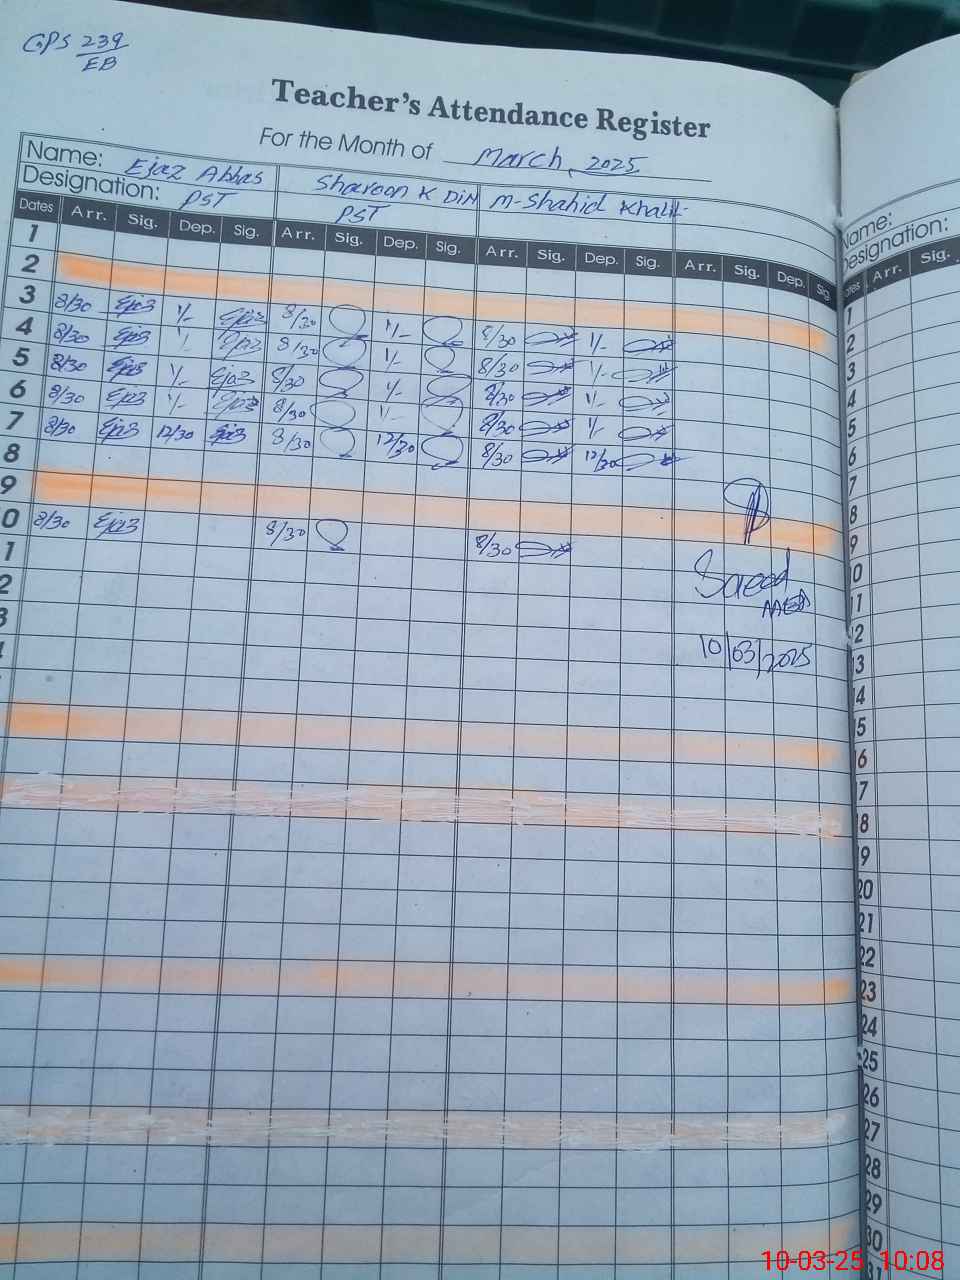 GPS 239/EB
Teacher's Attendance Register
For the Month of March, 2025
Name: Ejaz Abbas Sharoon K Din M-Shahid Khalil
Designation: PST PST
Dates Arr. Sig. Dep. Sig. Arr. Sig. Dep. Sig. Arr. Sig. Dep. Sig. Arr. Sig. Dep. Sig
1
2
3 8/30 Ejaz 1/- Ejaz 8/30 1/- 8/30 1/-
4 8/30 Ejaz 1/- Ejaz 8/30 1/- 8/30 1/-
5 8/30 Ejaz 1/- Ejaz 8/30 1/- 8/30 1/-
6 8/30 Ejaz 1/- Ejaz 8/30 1/- 8/30 1/-
7 8/30 Ejaz 12/30 Ejaz 8/30 12/30 8/30 12/30
8
9
0 8/30 Ejaz 8/30 8/30
1
2
3
Saeed
10/03/2025
Name:
Designation:
ates Arr. Sig.
1
2
3
4
5
6
7
8
9
10
11
12
13
14
15
16
17
18
19
20
21
22
23
24
25
26
27
28
29
30
31
10-03-25 10:08